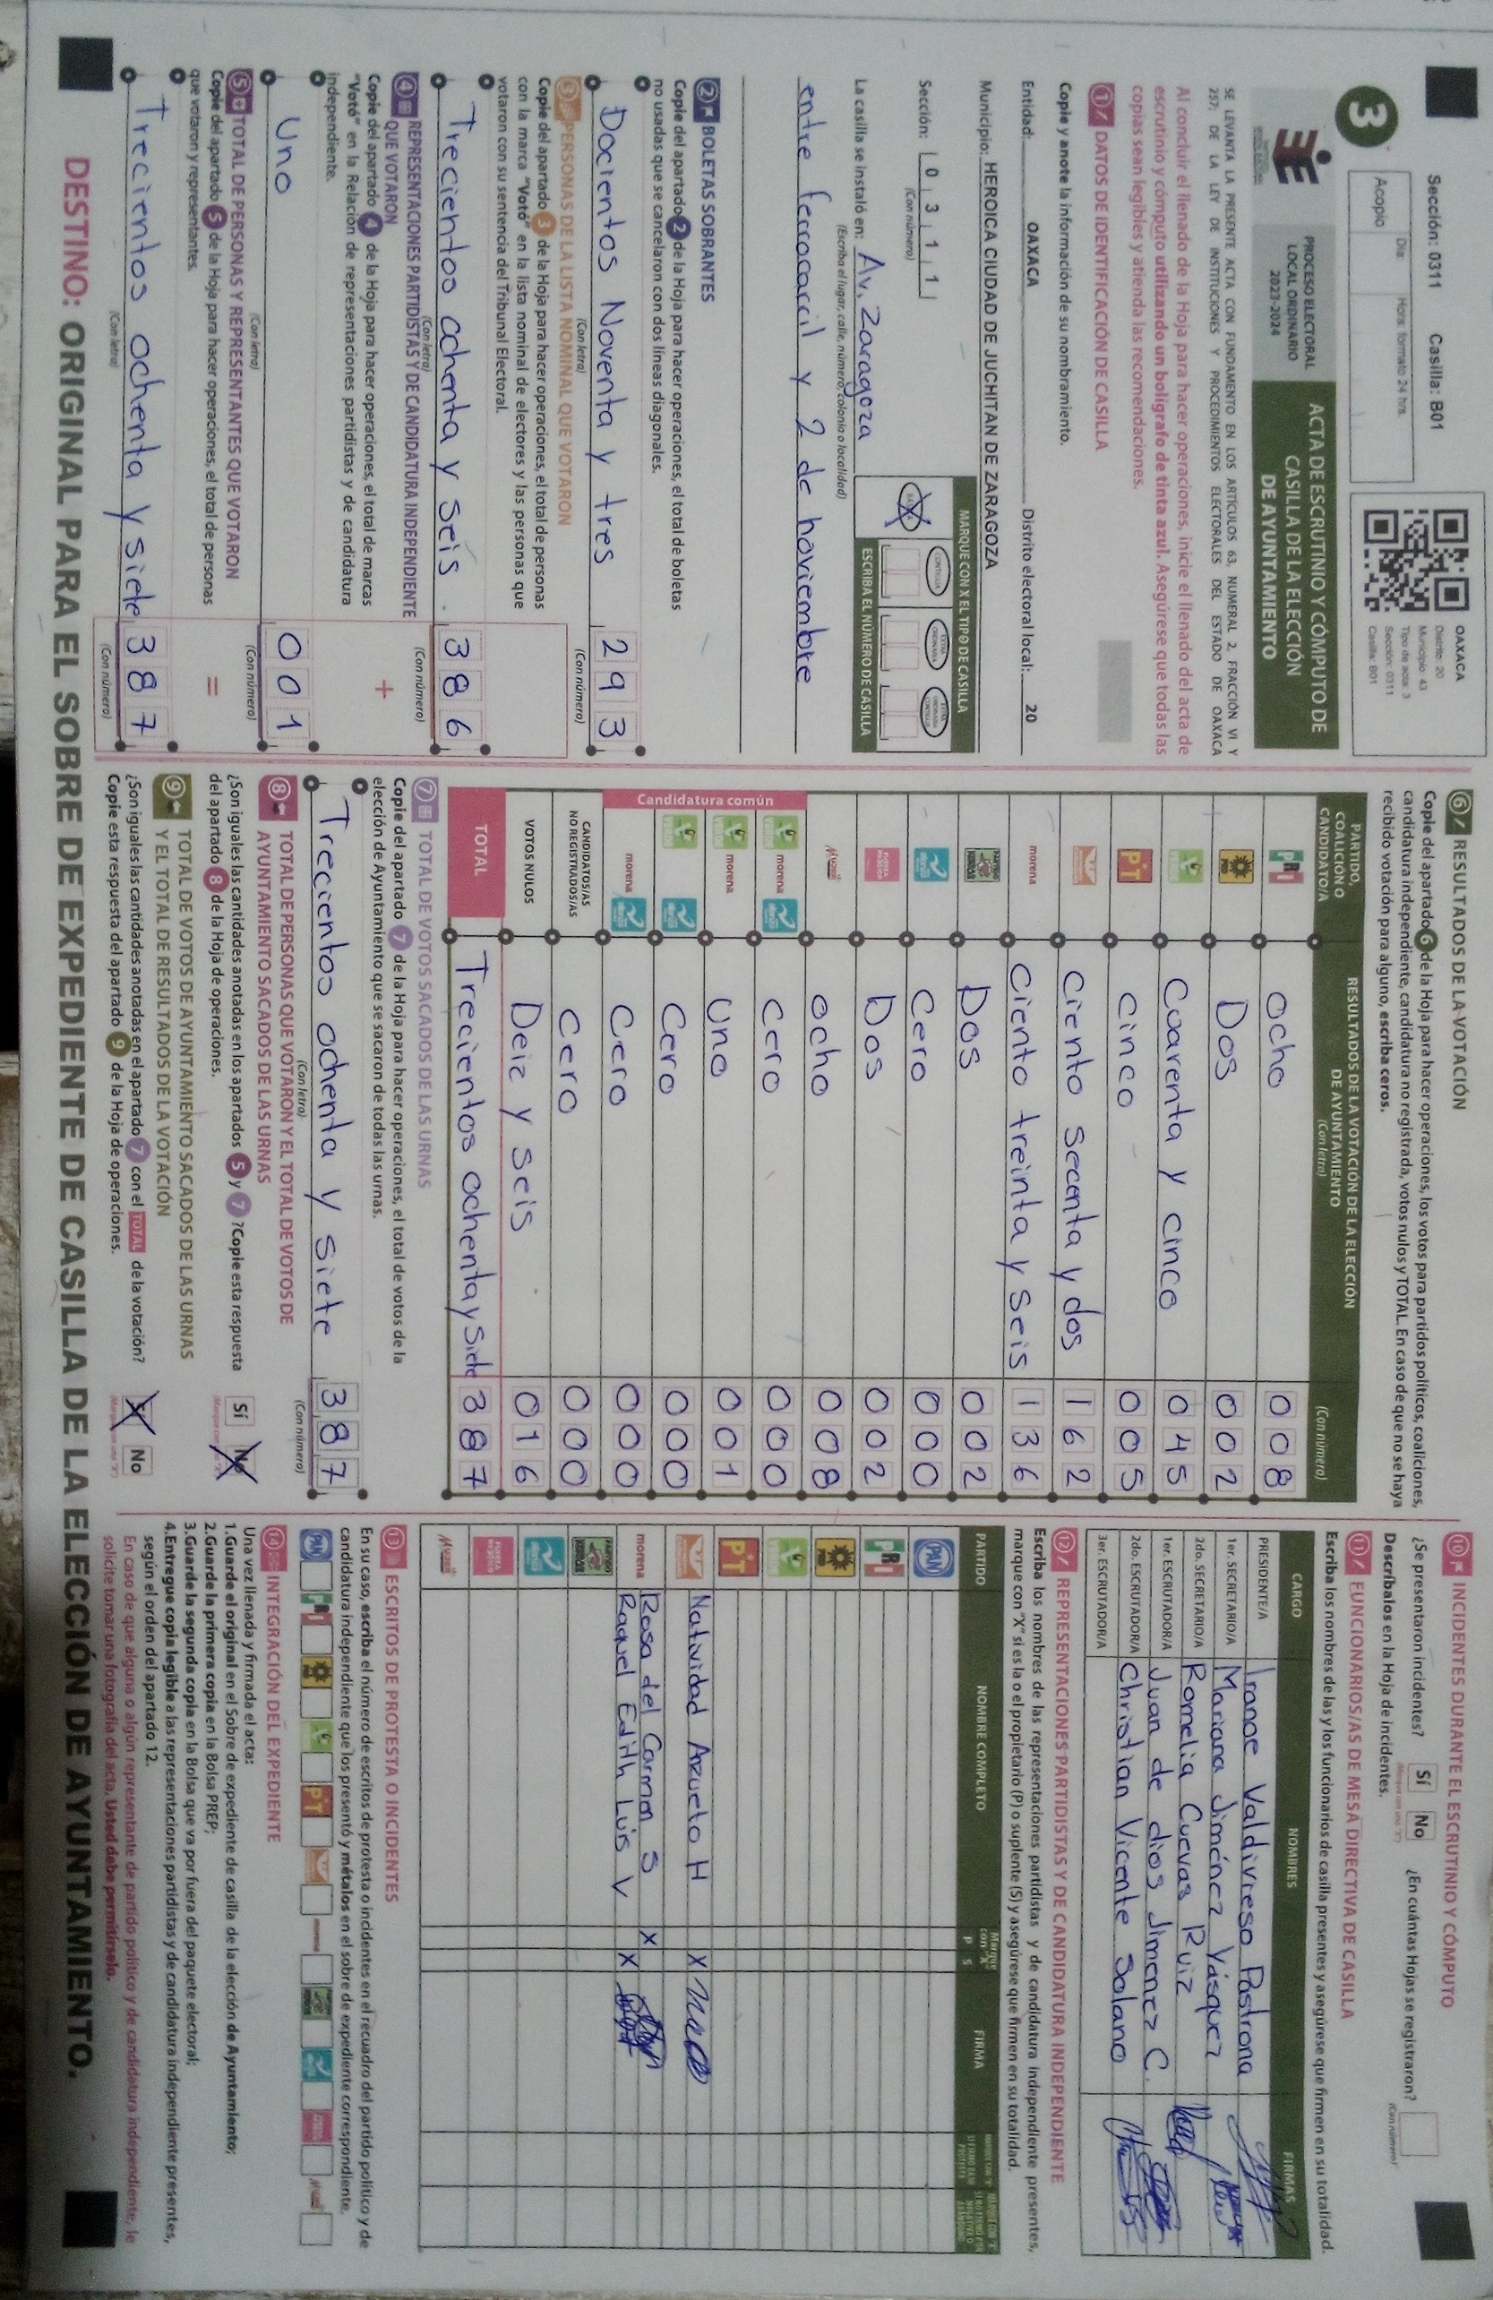 Sección: 0311 Casilla: B01
Día: Hora: formato 24 hrs.
Acopio
3
OAXACA
Distrito: 20
Municipio: 43
Tipo de acta: 3
Sección: 0311
Casilla: B01
PROCESO ELECTORAL
LOCAL ORDINARIO
2023-2024
ACTA DE ESCRUTINIO Y CÓMPUTO DE
CASILLA DE LA ELECCIÓN
DE AYUNTAMIENTO
SE LEVANTA LA PRESENTE ACTA CON FUNDAMENTO EN LOS ARTÍCULOS 63, NUMERAL 2, FRACCIÓN VI Y
257; DE LA LEY DE INSTITUCIONES Y PROCEDIMIENTOS ELECTORALES DEL ESTADO DE OAXACA
Al concluir el llenado de la Hoja para hacer operaciones, inicie el llenado del acta de
escrutinio y cómputo utilizando un bolígrafo de tinta azul. Asegúrese que todas las
copias sean legibles y atienda las recomendaciones.
1 DATOS DE IDENTIFICACIÓN DE CASILLA
Copie y anote la información de su nombramiento.
Entidad: OAXACA Distrito electoral local: 20
Municipio: HEROICA CIUDAD DE JUCHITAN DE ZARAGOZA
Sección: 0 3 1 1
(Con número)
MARQUE CON X EL TIPO DE CASILLA
ESCRIBA EL NÚMERO DE CASILLA
La casilla se instaló en: Av. Zaragoza
(Escriba el lugar, calle, número, colonia o localidad)
entre ferrocarril y 2 de noviembre
2 BOLETAS SOBRANTES
Copie del apartado 2 de la Hoja para hacer operaciones, el total de boletas
no usadas que se cancelaron con dos líneas diagonales.
Docientos Noventa y tres 293
(Con letra) (Con número)
3 PERSONAS DE LA LISTA NOMINAL QUE VOTARON
Copie del apartado 3 de la Hoja para hacer operaciones, el total de personas
con la marca "Votó" en la lista nominal de electores y las personas que
votaron con su sentencia del Tribunal Electoral.
Trecientos ochenta y seis. 386
(Con letra) (Con número)
4 REPRESENTACIONES PARTIDISTAS Y DE CANDIDATURA INDEPENDIENTE
QUE VOTARON
Copie del apartado 4 de la Hoja para hacer operaciones, el total de marcas
"Votó" en la Relación de representaciones partidistas y de candidatura
independiente.
+
Uno 001
(Con letra) (Con número)
5 TOTAL DE PERSONAS Y REPRESENTANTES QUE VOTARON
Copie del apartado 5 de la Hoja para hacer operaciones, el total de personas
que votaron y representantes.
=
Trecientos ochenta y siete 387
(Con letra) (Con número)
6 RESULTADOS DE LA VOTACIÓN
Copie del apartado 6 de la Hoja para hacer operaciones, los votos para partidos políticos, coaliciones,
candidatura independiente, candidatura no registrada, votos nulos y TOTAL. En caso de que no se haya
recibido votación para alguno, escriba ceros.
PARTIDO,
COALICIÓN O
CANDIDATO/A
RESULTADOS DE LA VOTACIÓN DE LA ELECCIÓN
DE AYUNTAMIENTO
(Con letra) (Con número)
PRI ocho 008
PRD Dos 002
Cuarenta y cinco 045
PT cinco 005
Ciento secenta y dos 162
morena Ciento treinta y seis 136
Dos 002
Cero 000
Dos 002
ocho 008
Candidatura común
morena cero 000
morena Uno 001
Cero 000
morena Cero 000
CANDIDATOS/AS
NO REGISTRADOS/AS Cero 000
VOTOS NULOS Deiz y seis 016
TOTAL Trecientos ochenta y Siete 387
7 TOTAL DE VOTOS SACADOS DE LAS URNAS
Copie del apartado 7 de la Hoja para hacer operaciones, el total de votos de la
elección de Ayuntamiento que se sacaron de todas las urnas.
Trecientos ochenta y siete 387
(Con letra) (Con número)
8 TOTAL DE PERSONAS QUE VOTARON Y EL TOTAL DE VOTOS DE
AYUNTAMIENTO SACADOS DE LAS URNAS
¿Son iguales las cantidades anotadas en los apartados 5 y 7 ? Copie esta respuesta
del apartado 8 de la Hoja de operaciones.
Sí No
9 TOTAL DE VOTOS DE AYUNTAMIENTO SACADOS DE LAS URNAS
Y EL TOTAL DE RESULTADOS DE LA VOTACIÓN
¿Son iguales las cantidades anotadas en el apartado 7 con el TOTAL de la votación?
Copie esta respuesta del apartado 9 de la Hoja de operaciones.
Sí No
10 INCIDENTES DURANTE EL ESCRUTINIO Y CÓMPUTO
¿Se presentaron incidentes? Sí No ¿En cuántas Hojas se registraron?
(Con número)
Descríbalos en la Hoja de incidentes.
11 FUNCIONARIOS/AS DE MESA DIRECTIVA DE CASILLA
Escriba los nombres de las y los funcionarios de casilla presentes y asegúrese que firmen en su totalidad.
CARGO NOMBRES FIRMAS
PRESIDENTE/A Iranae Valdivieso Pastrona
1er. SECRETARIO/A Mariana Jiménez Vásquez
2do. SECRETARIO/A Romelia Cuevas Ruiz
1er. ESCRUTADOR/A Juan de dios Jimenez C.
2do. ESCRUTADOR/A Christian Vicente Solano
3er. ESCRUTADOR/A
12 REPRESENTACIONES PARTIDISTAS Y DE CANDIDATURA INDEPENDIENTE
Escriba los nombres de las representaciones partidistas y de candidatura independiente presentes,
marque con "X" si es la o el propietario (P) o suplente (S) y asegúrese que firmen en su totalidad.
PARTIDO NOMBRE COMPLETO Marque con "X" P S FIRMA
PAN
PRI
PRD
PT
Natividad Azueto H X
morena Rosa del Carmen S X
Raquel Edith Luis V X
13 ESCRITOS DE PROTESTA O INCIDENTES
En su caso, escriba el número de escritos de protesta o incidentes en el recuadro del partido político y de
candidatura independiente que los presentó y métalos en el sobre de expediente correspondiente.
PAN PRI PRD PT
14 INTEGRACIÓN DEL EXPEDIENTE
Una vez llenada y firmada el acta:
1.Guarde el original en el Sobre de expediente de casilla de la elección de Ayuntamiento;
2.Guarde la primera copia en la Bolsa PREP;
3.Guarde la segunda copia en la Bolsa que va por fuera del paquete electoral;
4.Entregue copia legible a las representaciones partidistas y de candidatura independiente presentes,
según el orden del apartado 12.
En caso de que alguna o algún representante de partido político y de candidatura independiente, le
solicite tomar una fotografía del acta, Usted debe permitírselo.
DESTINO: ORIGINAL PARA EL SOBRE DE EXPEDIENTE DE CASILLA DE LA ELECCIÓN DE AYUNTAMIENTO.